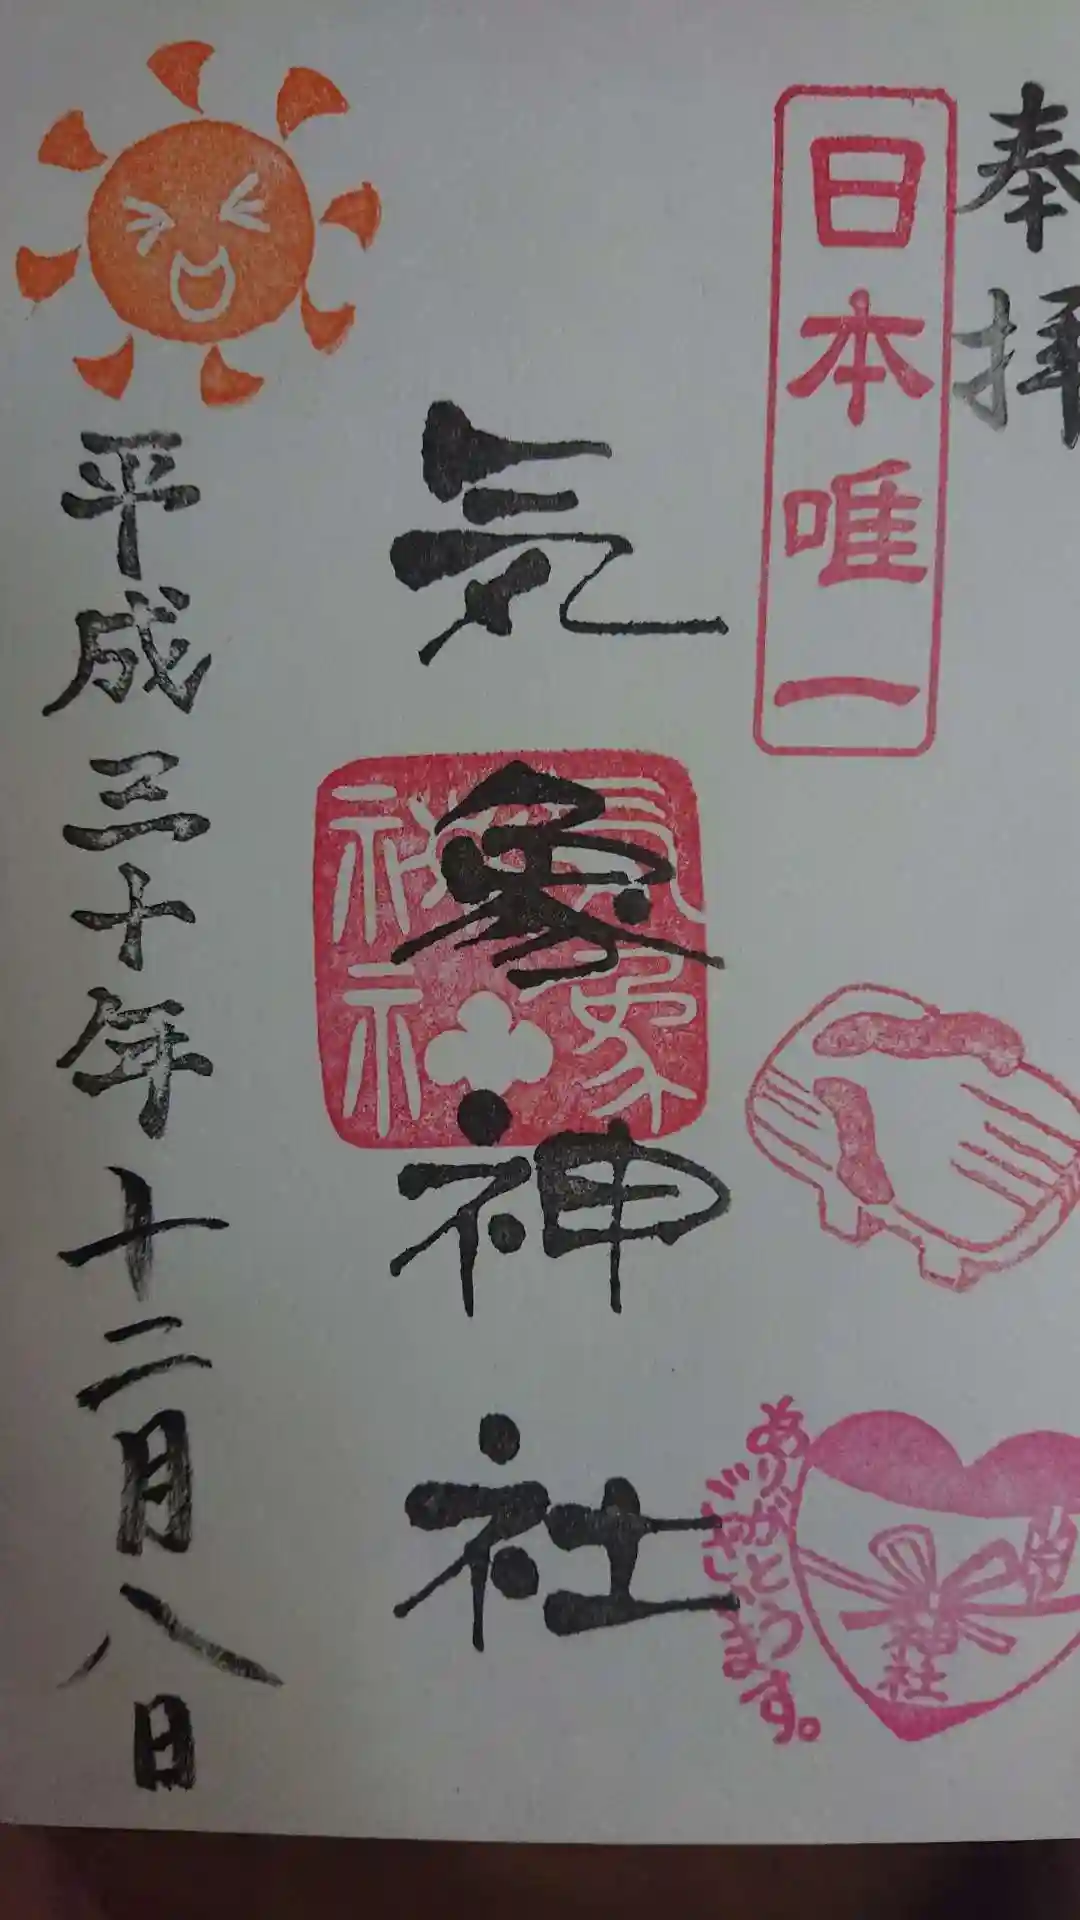 奉拝
日本唯一
気象神社
気象神社
ありがとう
ございます。
神社
平成三十年十二月八日